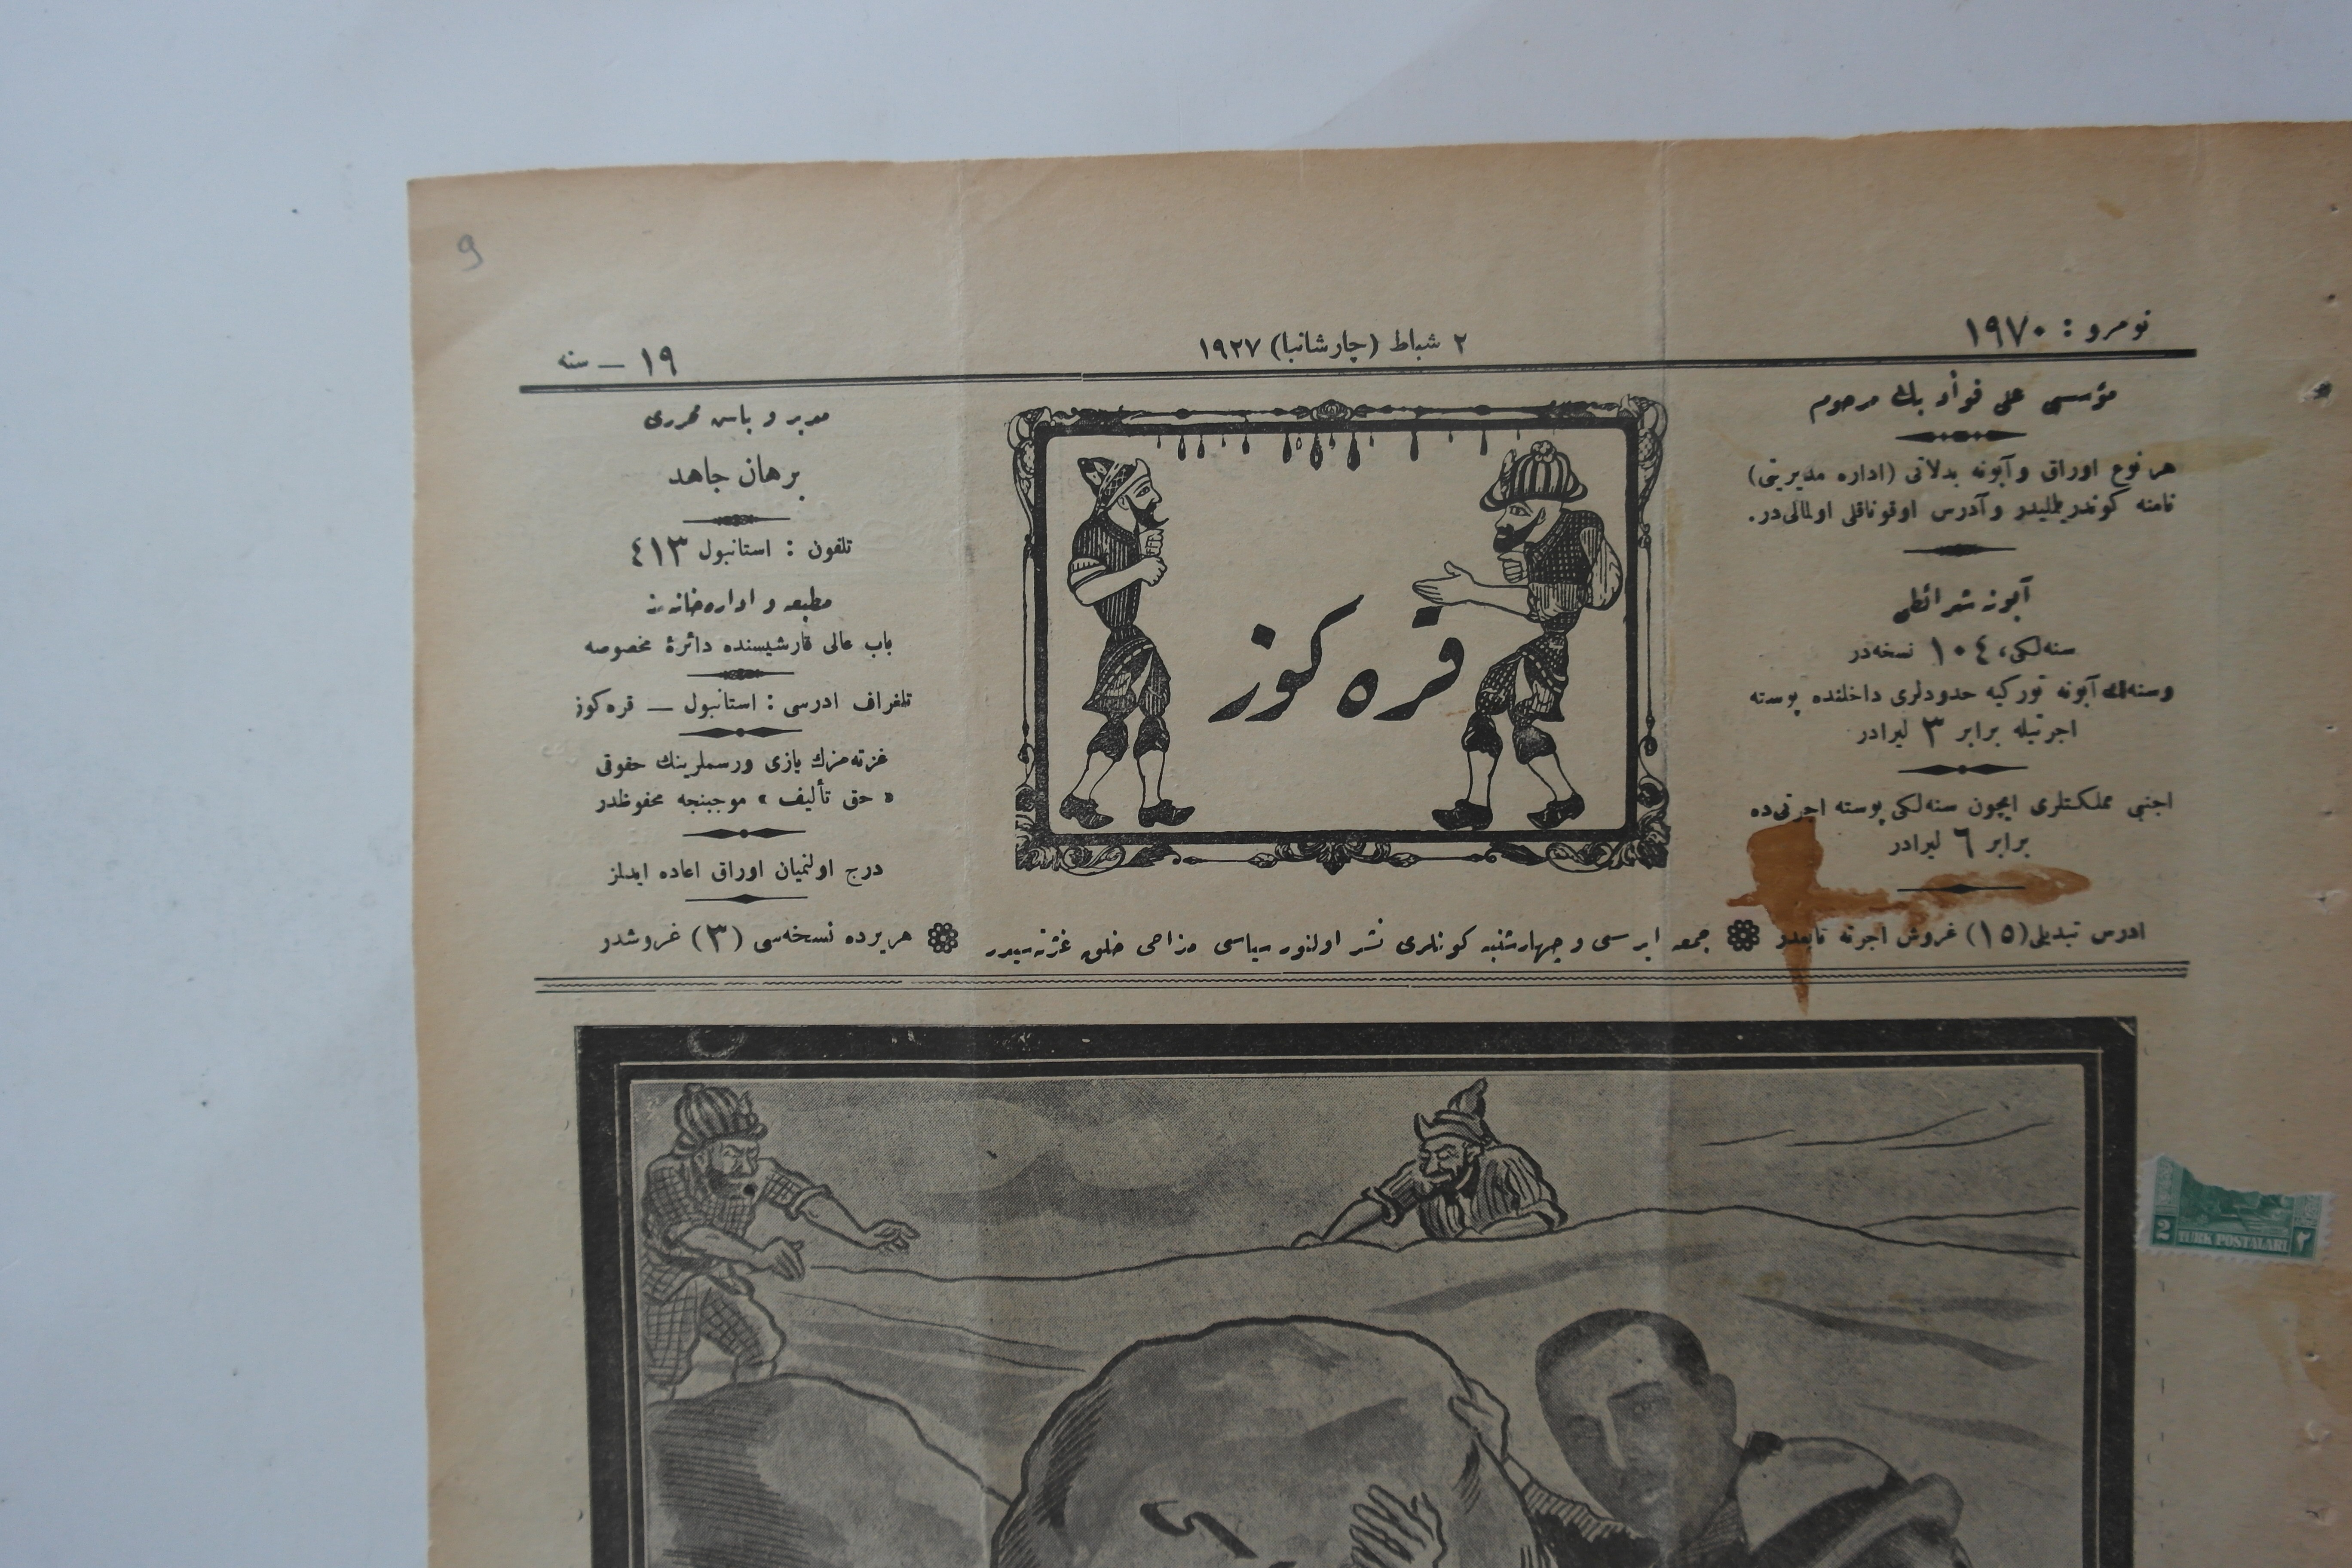 نومرو : ١٩٧٠
٢ شباط (چارشانبا) ١٩٢٧
١٩ — سنه
مؤسسی علی فؤاد بك مرحوم
هر نوع اوراق و آبونه بدلاتی (اداره مدیریتی)
نامنه كوندریلملیدر و آدرس اوقوناقلی اولمالی‌در.
آبونه شرائطی
سنه‌لكی، ١٠٤ نسخه‌در
وسنه‌لك آبونه توركیه حدودلری داخلنده پوسته
اجرتیله برابر ٣ لیرادر
اجنبی مملكتلری ایچون سنه‌لكی پوسته اجرتی‌ده
برابر ٦ لیرادر
قره كوز
مدیر و باش محرری
برهان جاهد
تلفون : استانبول ٤١٣
مطبعه و اداره‌خانه‌سی
باب عالی قارشیسنده دائرهٔ مخصوصه
تلغراف ادرسی : استانبول — قره‌كوز
غزته‌مزك یازی ورسملرینك حقوقی
« حق تألیف » موجبنجه محفوظدر
درج اولنمیان اوراق اعاده ایدلز
ادرس تبدیلی (١٥) غروش اجرته تابعدر
جمعه ایرتسی و چهارشنبه كونلری نشر اولنور سیاسی مزاحی خلق غزته‌سیدر
هریرده نسخه‌سی (٣) غروشدر
2 TÜRK POSTALARI ٢
9